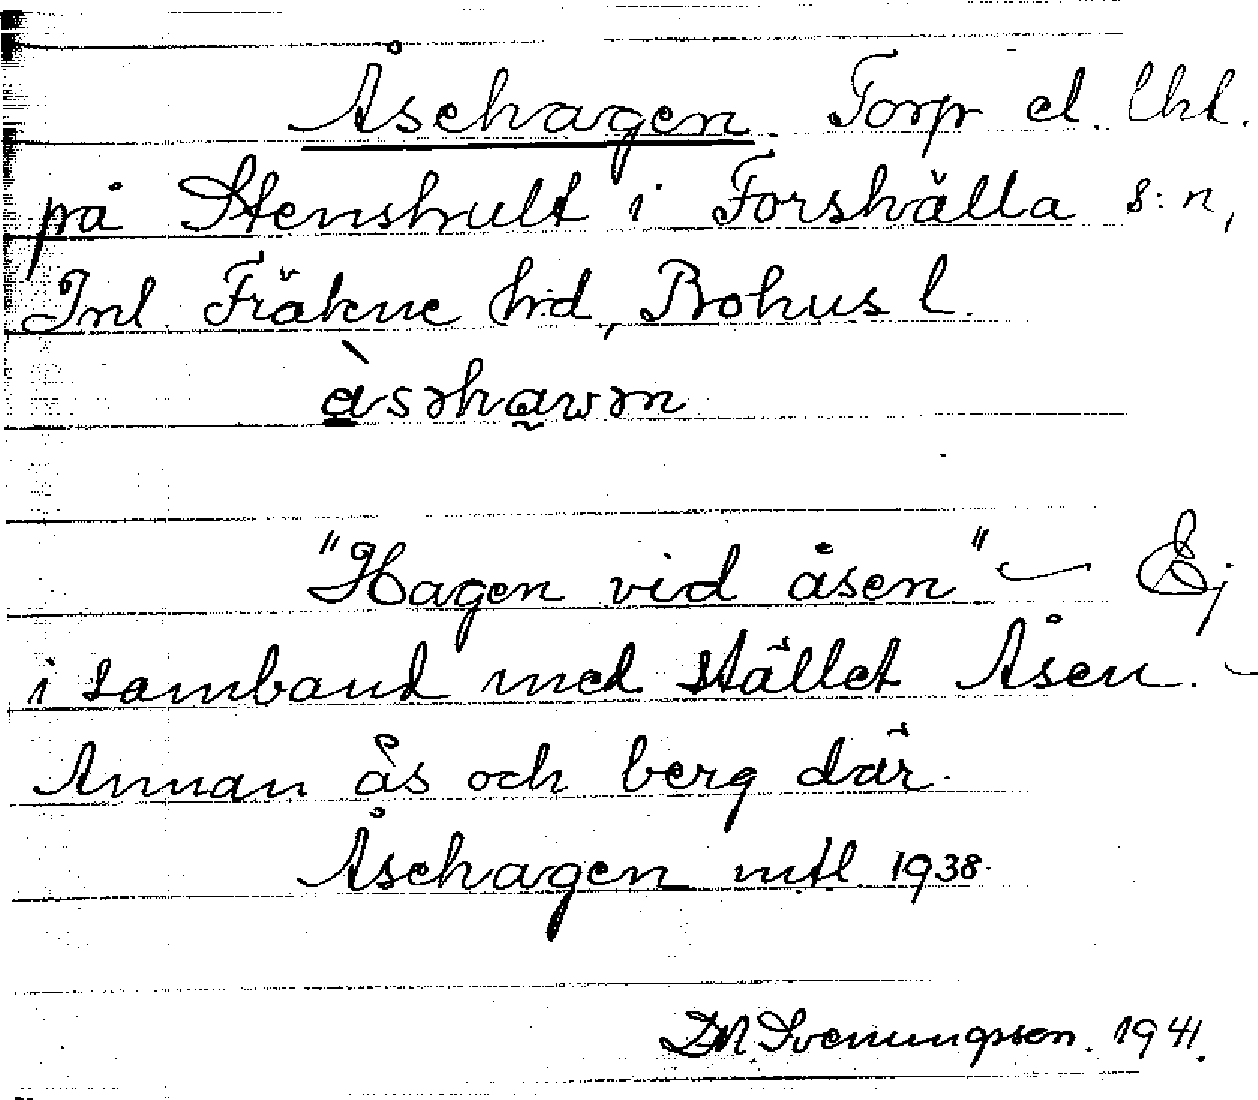 Åsehagen. Torp el. lht.
på Stenshult i Forshälla s:n,
Inl. Fräkne hd, Bohus l.
"Hagen vid åsen" — Ej
i samband med stället Åsen. —
Annan ås och berg där.
Åsehagen mtl 1938.
DN Svenungsson. 1941.